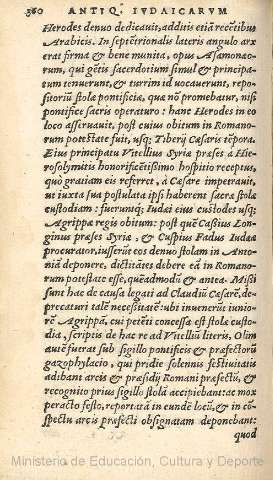 360 ANTIQ. IVDAICARVM
Herodes denuo dedicauit, additis etiã recẽtibus
Arabicis. In septẽtrionalis lateris angulo arx
erat firma & bene munita, opus Asamonaeo-
rum, qui gẽtis sacerdotium simul & principa-
tum tenuerunt, & turrim id uocauerunt, repo-
sitoriũ stolæ pontificiæ, quæ nõ promebatur, nisi
pontifice sacris operaturo: hanc Herodes in eo
loco asseruauit, post cuius obitum in Romano-
rum potestate fuit, usq; Tiberij Cæsaris tẽpora.
Eius principatu Vitellius Syriæ præses à Hie-
rosolymitis honorificẽtissimo hospitio receptus,
quò gratiam eis referret, à Cæsare impetrauit,
ut iuxta sua postulata ipsi haberent sacræ stolæ
custodiam: fueruntq; Iudæi eius custodes usq;
Agrippæ regis obitum: post quẽ Cassius Lon-
ginus præses Syriæ, & Cuspius Fadus Iudææ
procurator, iusserũt eos denuo stolam in Anto-
niã deponere, dictitãtes debere eã in Romano-
rum potestate esse, quẽadmodũ & antea. Missi
sunt hac de causa legati ad Claudiũ Cæsarẽ, de-
precaturi talẽ necessitatẽ: ubi inuenerũt iunio-
rẽ Agrippã, cui petẽti concessa est stolæ custo-
dia, scriptis de hac re ad Vitelliũ literis. Olim
autẽ fuerat sub sigillo pontificis & præfectorũ
gazophylacio, qui pridie solennis festiuitatis
adibant arcis & præsidij Romani præfectũ, &
recognito prius sigillo stolã accipiebant: ac mox
peracto festo, reportatã in eundẽ locũ, & in cõ-
spectu arcis præfecti obsignatam deponebant:
quod
Ministerio de Educación, Cultura y Deporte